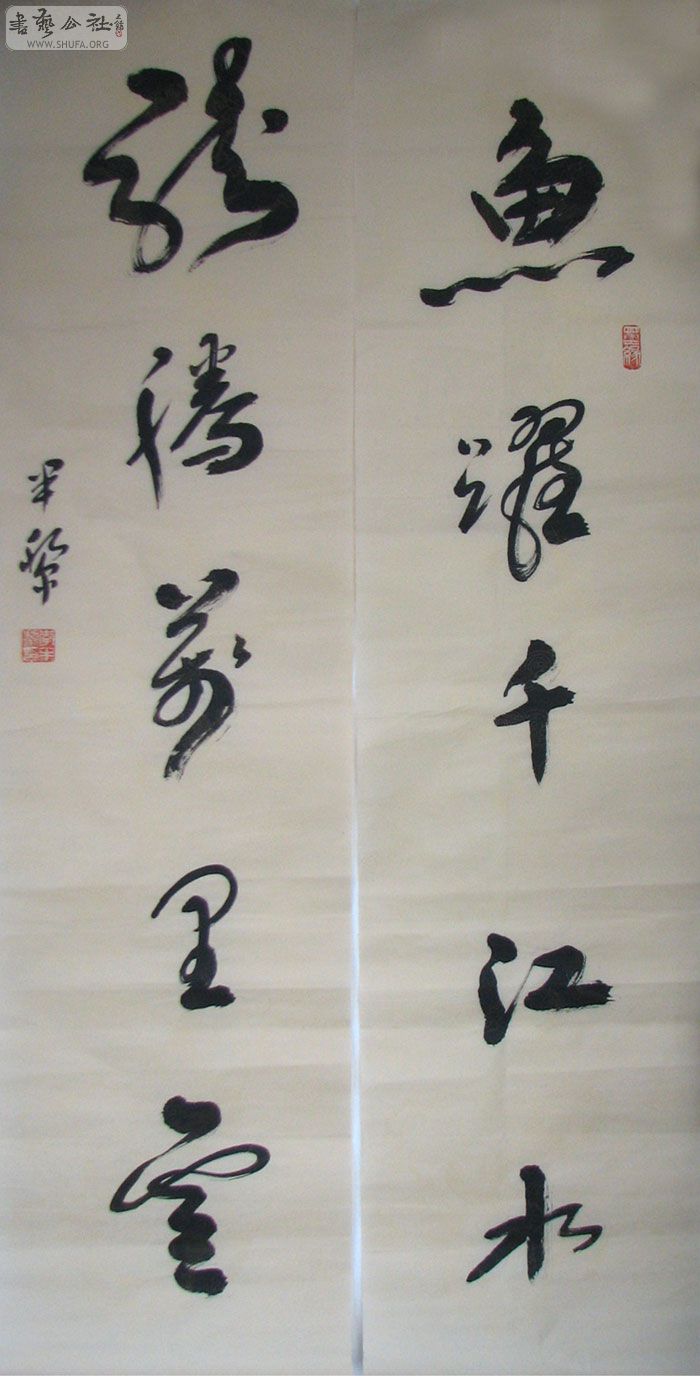 魚躍千江水
龍騰萬里雲
半黎
書藝公社
WWW.SHUFA.ORG